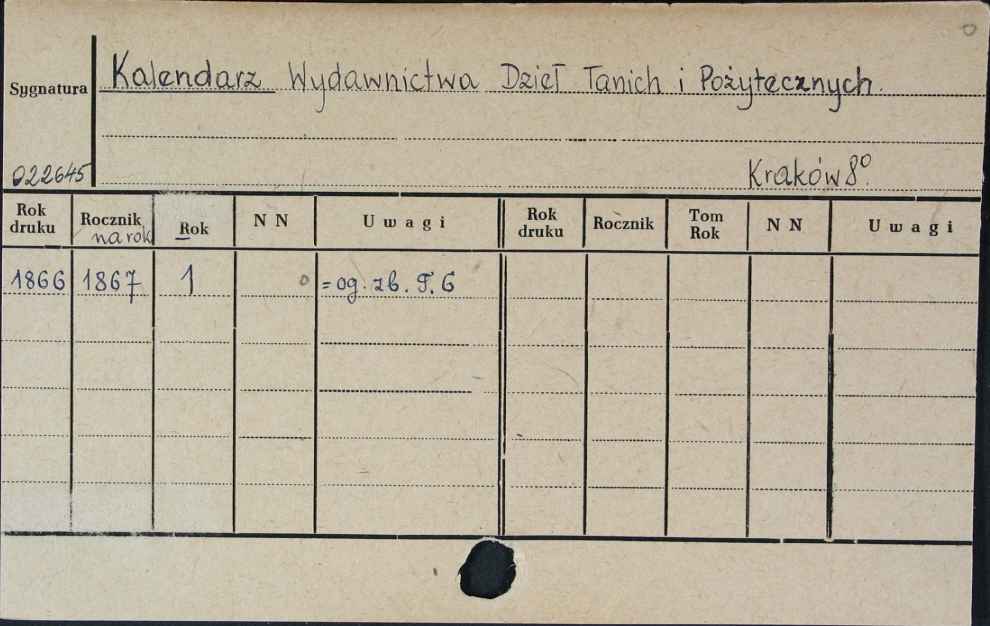 Sygnatura Kalendarz Wydawnictwa Dzieł Tanich i Pożytecznych.
022645 Kraków 8°.
Rok druku Rocznik na rok Rok N N Uwagi Rok druku Rocznik Tom Rok N N Uwagi
1866 1867 1 = og. zb. T. 6